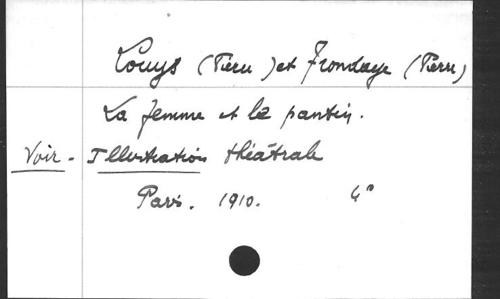 Louys (Pierre) et Frondaye (Pierre)
La femme et le pantin.
Voir - Illustration théâtrale
Paris. 1910. 4°